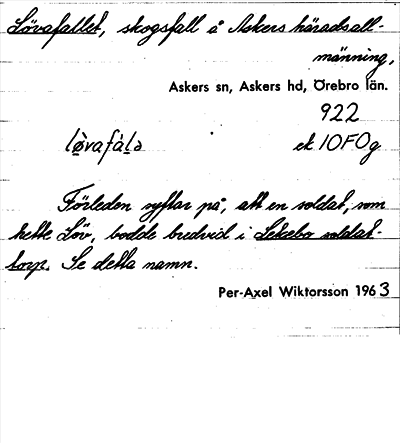 Lövafallet, skogsfall å Askers häradsall-
männing,
Askers sn, Askers hd, Örebro län.
922
lø̀vafál̠ə ek 10F0g
Förleden syftar på, att en soldat, som
hette Löv, bodde bredvid i Lekebo soldat-
torp. Se detta namn.
Per-Axel Wiktorsson 1963